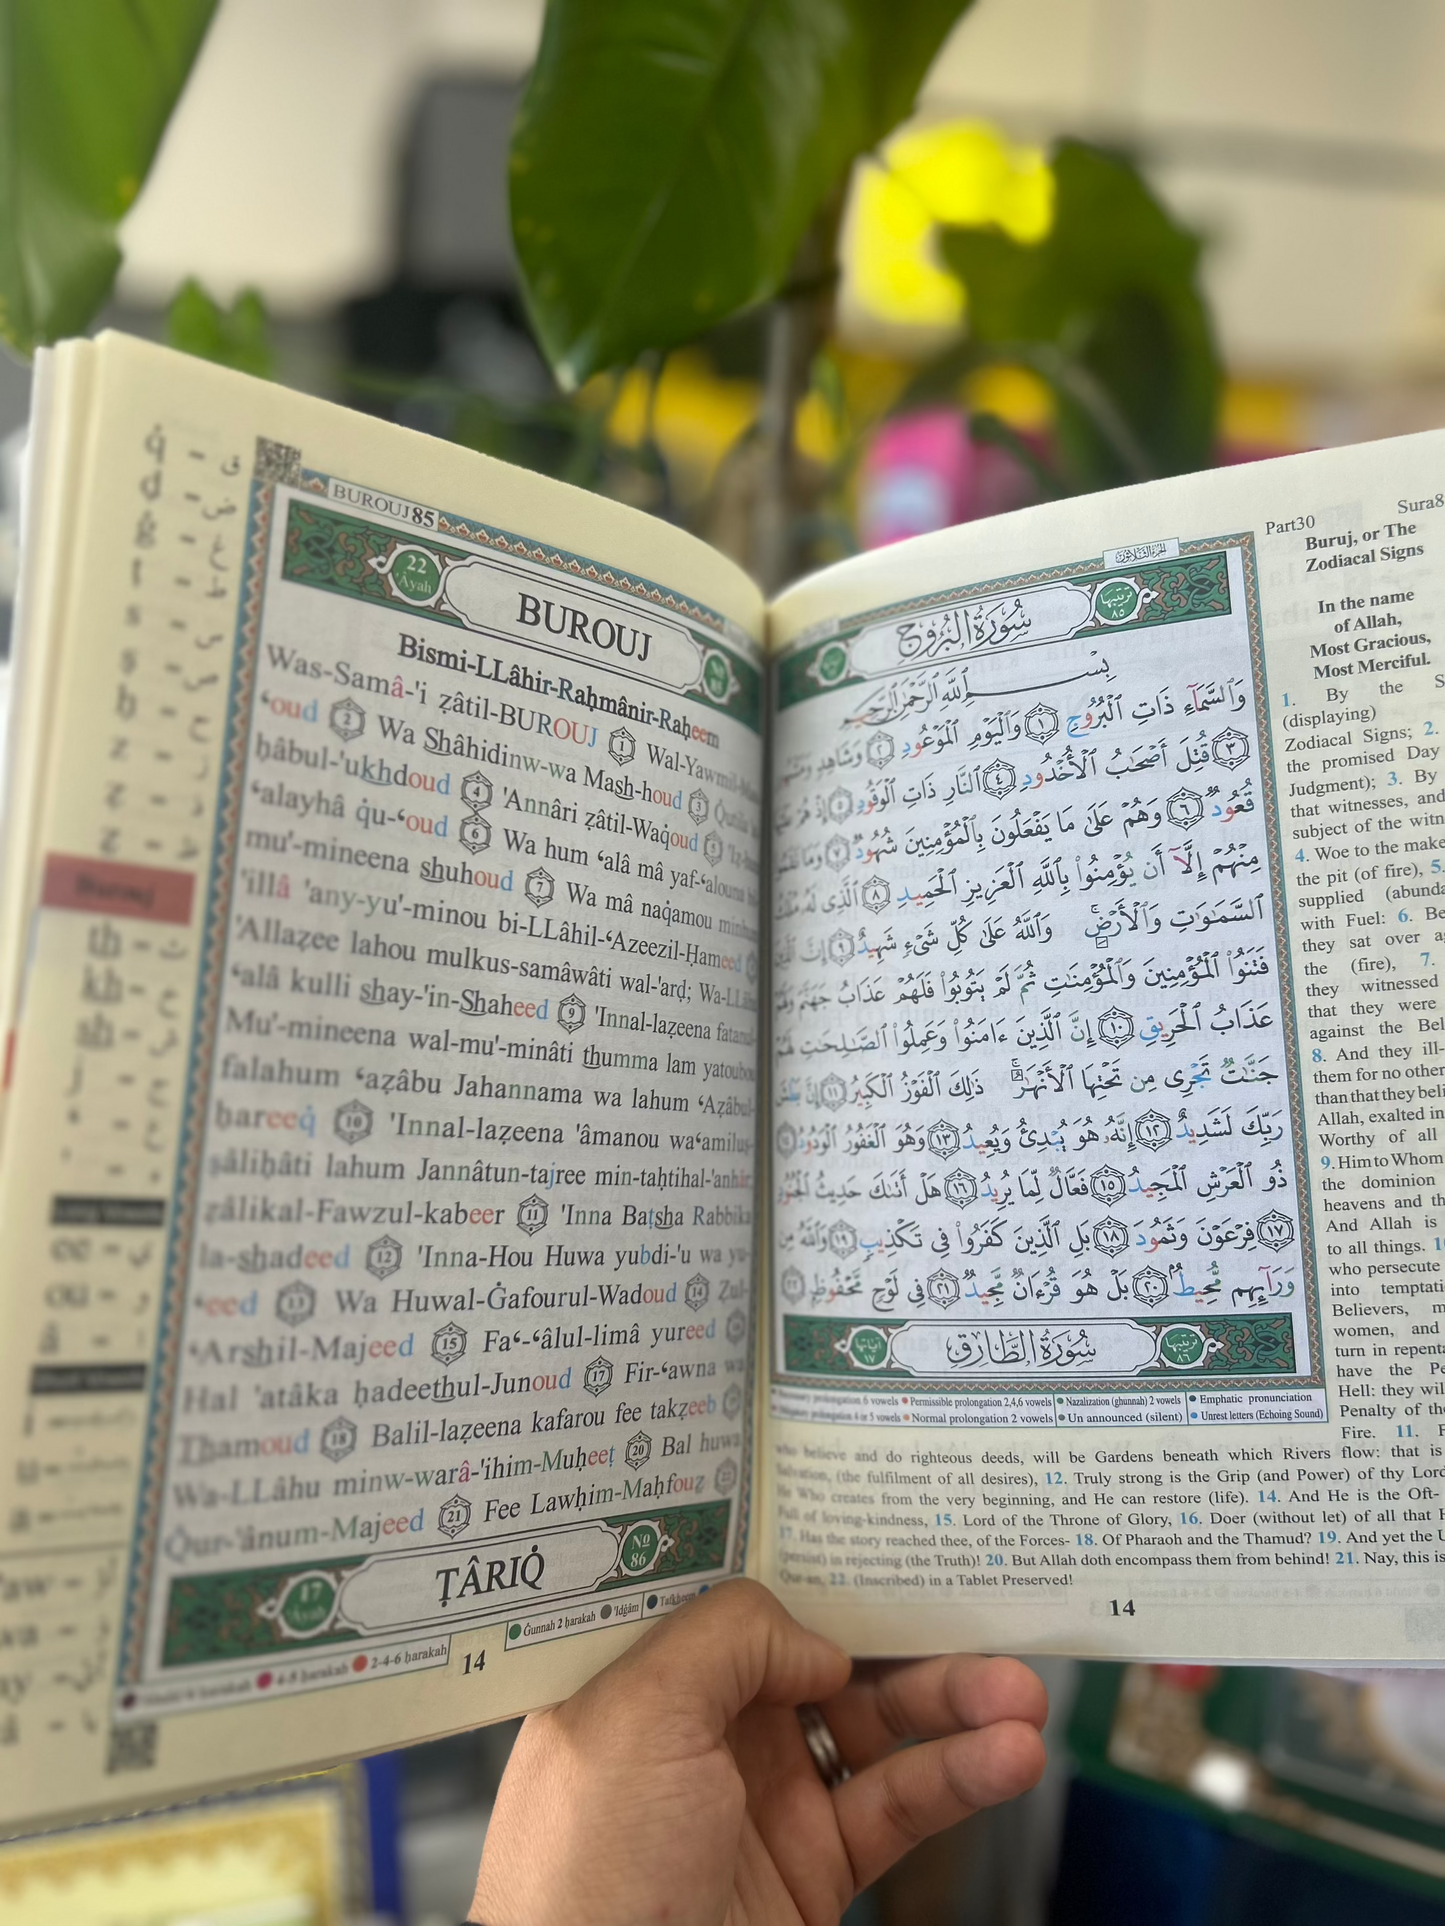 BUROUJ 85
22
'Âyah
BUROUJ
Nº
85
Bismi-LLâhir-Raḥmânir-Raḥeem
Was-Samâ-'i ẓâtil-BUROUJ 1 Wal-Yawmil-
‘oud 2 Wa Shâhidinw-wa Mash-houd 3 Qutila
ḥâbul-'ukhdoud 4 'Annâri ẓâtil-Waq̇oud 5
‘alayhâ q̇u-‘oud 6 Wa hum ‘alâ mâ yaf-‘alouna
mu'-mineena shuhoud 7 Wa mâ naq̇amou minhum
'illâ 'any-yu'-minou bi-LLâhil-‘Azeezil-Ḥameed
'Allaẓee lahou mulkus-samâwâti wal-'arḍ; Wa-LLâhu
‘alâ kulli shay-'in-Shaheed 9 'Innal-laẓeena fatanul-
Mu'-mineena wal-mu'-minâti thumma lam yatoubou
falahum ‘aẓâbu Jahannama wa lahum ‘Aẓâbul-
ḥareeq̇ 10 'Innal-laẓeena 'âmanou wa‘amiluṣ-
ṣâliḥâti lahum Jannâtun-tajree min-taḥtihal-'anhâr
ẓâlikal-Fawzul-kabeer 11 'Inna Baṭsha Rabbika
la-shadeed 12 'Inna-Hou Huwa yubdi-'u wa yu-
‘eed 13 Wa Huwal-Ġafourul-Wadoud 14 Zul-
‘Arshil-Majeed 15 Fa‘-‘âlul-limâ yureed
Hal 'atâka ḥadeethul-Junoud 17 Fir-‘awna wa
Thamoud 18 Balil-laẓeena kafarou fee takẓeeb
Wa-LLâhu minw-warâ-'ihim-Muḥeeṭ 20 Bal huwa
Q̇ur-'ânum-Majeed 21 Fee Lawḥim-Maḥfouẓ 22
17
'Âyah
ṬÂRIQ̇
Nº
86
4-8 ḥarakah 2-4-6 ḥarakah Ġunnah 2 ḥarakah 'Idġâm Tafkheem
14
q̇ - ق
ḍ - ض
ġ - غ
Burouj
th - ث
kh - خ
sh - ش
الجزء الثلاثون
سُورَةُ البُرُوجِ
ترتيبها
٨٥
بِسْمِ ٱللَّهِ ٱلرَّحْمَٰنِ ٱلرَّحِيمِ
وَٱلسَّمَآءِ ذَاتِ ٱلْبُرُوجِ ١ وَٱلْيَوْمِ ٱلْمَوْعُودِ ٢ وَشَاهِدٍ
٣ قُتِلَ أَصْحَٰبُ ٱلْأُخْدُودِ ٤ ٱلنَّارِ ذَاتِ ٱلْوَقُودِ ٥ إِذْ هُمْ
قُعُودٌ ٦ وَهُمْ عَلَىٰ مَا يَفْعَلُونَ بِٱلْمُؤْمِنِينَ شُهُودٌ ٧ وَمَا
مِنْهُمْ إِلَّآ أَن يُؤْمِنُوا۟ بِٱللَّهِ ٱلْعَزِيزِ ٱلْحَمِيدِ ٨ ٱلَّذِى لَهُۥ مُلْكُ
ٱلسَّمَٰوَٰتِ وَٱلْأَرْضِ ۚ وَٱللَّهُ عَلَىٰ كُلِّ شَىْءٍ شَهِيدٌ ٩ إِنَّ ٱلَّذِينَ
فَتَنُوا۟ ٱلْمُؤْمِنِينَ وَٱلْمُؤْمِنَٰتِ ثُمَّ لَمْ يَتُوبُوا۟ فَلَهُمْ عَذَابُ جَهَنَّمَ وَلَهُمْ
عَذَابُ ٱلْحَرِيقِ ١٠ إِنَّ ٱلَّذِينَ ءَامَنُوا۟ وَعَمِلُوا۟ ٱلصَّٰلِحَٰتِ لَهُمْ
جَنَّٰتٌ تَجْرِى مِن تَحْتِهَا ٱلْأَنْهَٰرُ ۚ ذَٰلِكَ ٱلْفَوْزُ ٱلْكَبِيرُ ١١ إِنَّ بَطْشَ
رَبِّكَ لَشَدِيدٌ ١٢ إِنَّهُۥ هُوَ يُبْدِئُ وَيُعِيدُ ١٣ وَهُوَ ٱلْغَفُورُ ٱلْوَدُودُ
ذُو ٱلْعَرْشِ ٱلْمَجِيدُ ١٥ فَعَّالٌ لِّمَا يُرِيدُ ١٦ هَلْ أَتَىٰكَ حَدِيثُ ٱلْجُنُودِ
١٧ فِرْعَوْنَ وَثَمُودَ ١٨ بَلِ ٱلَّذِينَ كَفَرُوا۟ فِى تَكْذِيبٍ ١٩ وَٱللَّهُ مِن
وَرَآئِهِم مُّحِيطٌۢ ٢٠ بَلْ هُوَ قُرْءَانٌ مَّجِيدٌ ٢١ فِى لَوْحٍ مَّحْفُوظٍۭ ٢٢
آياتها
١٧
سُورَةُ الطَّارِقِ
ترتيبها
٨٦
prolongation 6 vowels Permissible prolongation 2,4,6 vowels Nazalization (ghunnah) 2 vowels Emphatic pronunciation
prolongation 4 or 5 vowels Normal prolongation 2 vowels Un announced (silent) Unrest letters (Echoing Sound)
Part30 Sura8
Buruj, or The
Zodiacal Signs
In the name
of Allah,
Most Gracious,
Most Merciful.
1. By the S
(displaying)
Zodiacal Signs; 2.
the promised Day
Judgment); 3. By
that witnesses, and
subject of the witn
4. Woe to the make
the pit (of fire), 5.
supplied (abunda
with Fuel: 6. Be
they sat over a
the (fire), 7.
they witnessed
that they were
against the Bel
8. And they ill-
them for no other
than that they beli
Allah, exalted in
Worthy of all
9. Him to Whom
the dominion
heavens and th
And Allah is
to all things. 1
who persecute
into temptati
Believers, m
women, and
turn in repenta
have the Pe
Hell: they wil
Penalty of the
Fire. 11. F
who believe and do righteous deeds, will be Gardens beneath which Rivers flow: that is
Salvation, (the fulfilment of all desires), 12. Truly strong is the Grip (and Power) of thy Lord
He Who creates from the very beginning, and He can restore (life). 14. And He is the Oft-
Full of loving-kindness, 15. Lord of the Throne of Glory, 16. Doer (without let) of all that H
17. Has the story reached thee, of the Forces- 18. Of Pharaoh and the Thamud? 19. And yet the U
(persist) in rejecting (the Truth)! 20. But Allah doth encompass them from behind! 21. Nay, this is
Qur-an, 22. (Inscribed) in a Tablet Preserved!
14